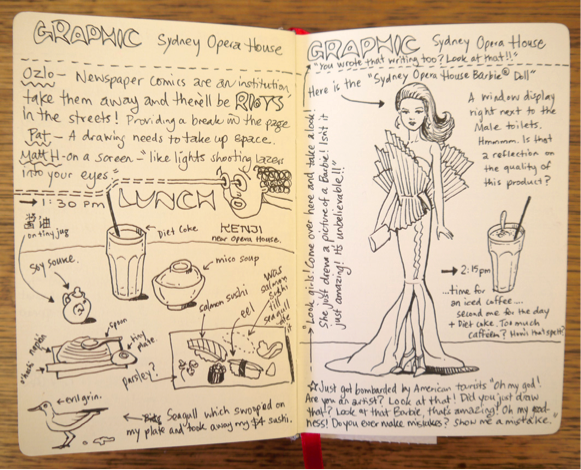 GRAPHIC Sydney Opera House
Ozlo - Newspaper comics are an institution,
take them away and there'll be RIOTS
in the streets! Providing a break in the page.
Pat - A drawing needs to take up space.
Matt H - on a screen - "like lights shooting lazers
into your eyes."
LUNCH
→ 1:30 PM
酱油
on tiny jug
Diet Coke
KENJI
near opera House.
soy sauce.
miso soup
salmon sushi
eel
was
salmon
sushi
till
seagull
ate
it
spoon
tiny plate
parsley?
evil grin.
Seagull which swooped on
my plate and took away my $4 sushi.
GRAPHIC Sydney Opera House
"You wrote that writing too? Look at that!!"
Here is the "Sydney Opera House Barbie® Doll"
A window display
right next to the
Male toilets.
Hmmmm. Is that
a reflection on
the quality of
this product?
"Look, girls! Come over here and take a look!
She just drew a picture of a Barbie! Isn't it
just amazing! It's unbelievable!!"
→ 2:15pm
...time for
an iced coffee...
second one for the day
+ Diet Coke. Too much
caffeine?
☆Just got bombarded by American tourists "Oh my god!
Are you an artist? Look at that! Did you just draw
that? Look at that Barbie, that's amazing! Oh my good-
ness! Do you ever make mistakes? Show me a mistake."